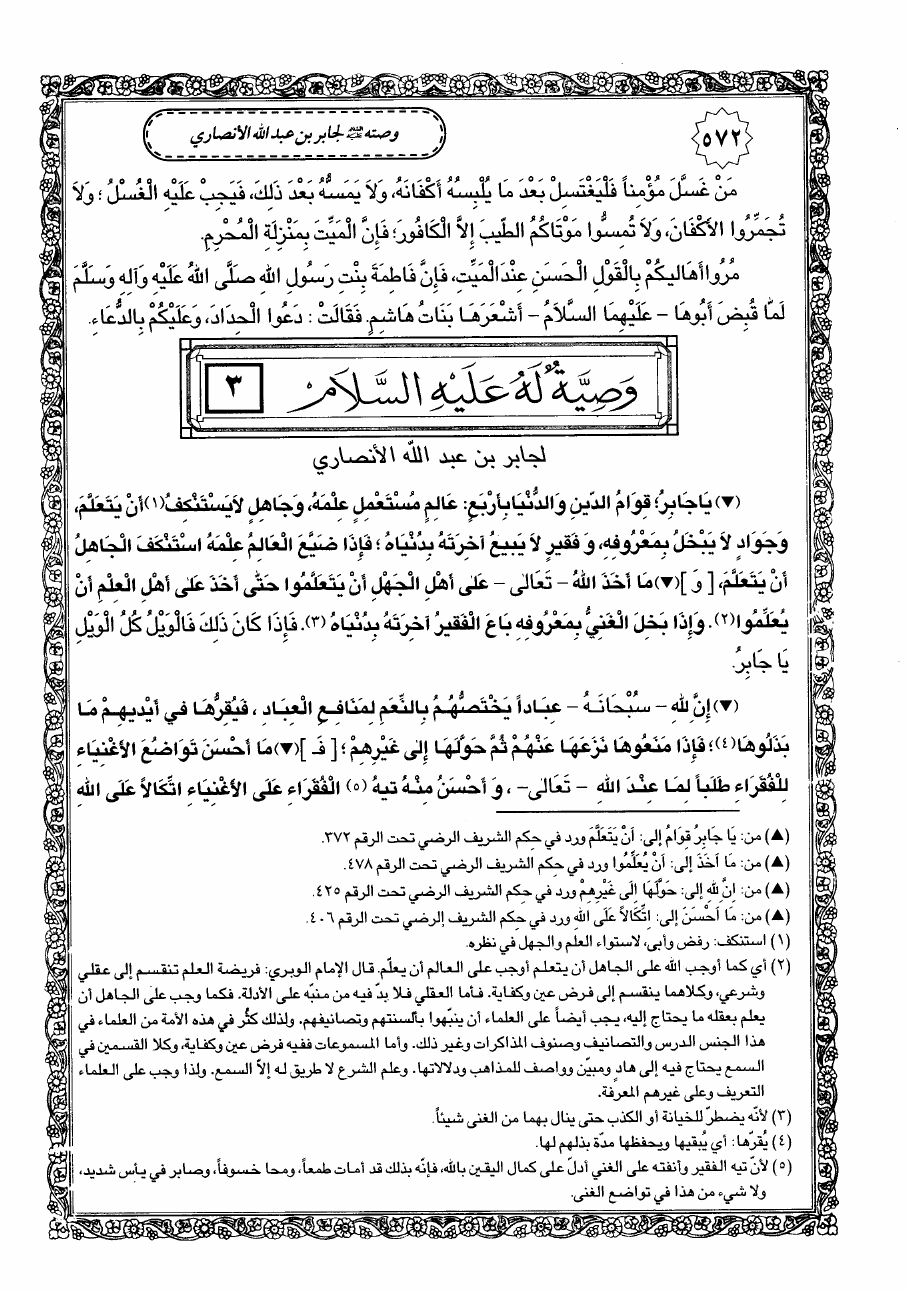 ٥٧٢
وصته عليه السلام لجابر بن عبد الله الأنصاري
مَنْ غَسَّلَ مُؤْمِناً فَلْيَغْتَسِلْ بَعْدَ مَا يُلْبِسُهُ أَكْفَانَهُ، وَلاَ يَمَسُّهُ بَعْدَ ذَلِكَ، فَيَجِبْ عَلَيْهِ الْغُسْلُ؛ وَلاَ
تُجَمِّرُوا الأَكْفَانَ، وَلاَ تُمِسُّوا مَوْتَاكُمُ الطّيبَ إِلاَّ الْكَافُورَ؛ فَإِنَّ الْمَيِّتَ بِمَنْزِلَةِ الْمُحْرِمِ.
مُرُوا أَهَاليكُمْ بِالْقَوْلِ الْحَسَنِ عِنْدَ الْمَيِّتِ، فَإِنَّ فَاطِمَةَ بِنْتِ رَسُولِ اللهِ صَلَّى اللهُ عَلَيْهِ وَآلِهِ وَسَلَّمَ
لَمَّا قُبِضَ أَبُوهَا - عَلَيْهِمَا السَّلاَمُ - أَشْعَرَهَا بَنَاتُ هَاشِمٍ. فَقَالَتْ: دَعُوا الْحِدَادَ، وَعَلَيْكُمْ بِالدُّعَاءِ.
وَصِيَّةٌ لَهُ عَلَيْهِ السَّلاَمُ ٣
لجابر بن عبد اللّه الأنصاري
(▼) يَا جَابِرُ؛ قِوَامُ الدّينِ وَالدُّنْيَا بِأَرْبَعٍ: عَالِمٍ مُسْتَعْمِلٍ عِلْمَهُ، وَجَاهِلٍ لاَ يَسْتَنْكِفُ(١) أَنْ يَتَعَلَّمَ،
وَجَوَادٍ لاَ يَبْخَلُ بِمَعْرُوفِهِ، وَفَقيرٍ لاَ يَبيعُ آخِرَتَهُ بِدُنْيَاهُ؛ فَإِذَا ضَيَّعَ الْعَالِمُ عِلْمَهُ اسْتَنْكَفَ الْجَاهِلُ
أَنْ يَتَعَلَّمَ، [ وَ ](▼) مَا أَخَذَ اللهُ - تَعَالَى - عَلَى أَهْلِ الْجَهْلِ أَنْ يَتَعَلَّمُوا حَتَّى أَخَذَ عَلَى أَهْلِ الْعِلْمِ أَنْ
يُعَلِّمُوا(٢). وَإِذَا بَخِلَ الْغَنِيُّ بِمَعْرُوفِهِ بَاعَ الْفَقيرُ آخِرَتَهُ بِدُنْيَاهُ(٣). فَإِذَا كَانَ ذَلِكَ فَالْوَيْلُ كُلُّ الْوَيْلِ
يَا جَابِرُ.
(▼) إِنَّ لِلّهِ - سُبْحَانَهُ - عِبَاداً يَخْتَصُّهُمُ بِالنِّعَمِ لِمَنَافِعِ الْعِبَادِ، فَيُقِرُّهَا في أَيْديهِمْ مَا
بَذَلُوهَا(٤)؛ فَإِذَا مَنَعُوهَا نَزَعَهَا عَنْهُمْ ثُمَّ حَوَّلَهَا إِلى غَيْرِهِمْ؛ [ فَـ ](▼) مَا أَحْسَنَ تَوَاضُعَ الأَغْنِيَاءِ
لِلْفُقَرَاءِ طَلَباً لِمَا عِنْدَ اللهِ - تَعَالَى-، وَ أَحْسَنُ مِنْهُ تيهُ (٥) الْفُقَرَاءِ عَلَى الأَغْنِيَاءِ اتِّكَالاً عَلَى اللهِ
(▲) من: يَا جَابِرُ قِوَامُ إلى: أَنْ يَتَعَلَّمَ ورد في حكم الشريف الرضي تحت الرقم ٣٧٢.
(▲) من: مَا أَخَذَ إلى: أَنْ يُعَلِّمُوا ورد في حكم الشريف الرضي تحت الرقم ٤٧٨.
(▲) من: إِنَّ لِلّهِ إلى: حَوَّلَهَا إِلَى غَيْرِهِمْ ورد في حكم الشريف الرضي تحت الرقم ٤٢٥.
(▲) من: مَا أَحْسَنَ إلى: اتِّكَالاً عَلَى اللهِ ورد في حكم الشريف الرضي تحت الرقم ٤٠٦.
(١) استنكف: رفض وأبى، لاستواء العلم والجهل في نظره.
(٢) أي كما أوجب الله على الجاهل أن يتعلم أوجب على العالم أن يعلّم. قال الإمام الوبري: فريضة العلم تنقسم إلى عقلي
وشرعي، وكلاهما ينقسم إلى فرض عين وكفاية. فأما العقلي فلا بدّ فيه من منبّه على الأدلة. فكما وجب على الجاهل أن
يعلم بعقله ما يحتاج إليه، يجب أيضاً على العلماء أن ينبّهوا بألسنتهم وتصانيفهم. ولذلك كثُر في هذه الأمة من العلماء في
هذا الجنس الدرس والتصانيف وصنوف المذاكرات وغير ذلك. وأما المسموعات ففيه فرض عين وكفاية، وكلا القسمين في
السمع يحتاج فيه إلى هادٍ ومبيّن وواصف للمذاهب ودلالاتها. وعلم الشرع لا طريق له إلاّ السمع. ولذا وجب على العلماء
التعريف وعلى غيرهم المعرفة.
(٣) لأنّه يضطرّ للخيانة أو الكذب حتى ينال بهما من الغنى شيئاً.
(٤) يُقرّها: أي يُبقيها ويحفظها مدّة بذلهم لها.
(٥) لأنّ تيه الفقير وأنفته على الغني أدلّ على كمال اليقين بالله، فإنّه بذلك قد أمات طمعاً، ومحا خسوفاً، وصابر في يأس شديد،
ولا شيء من هذا في تواضع الغنى.